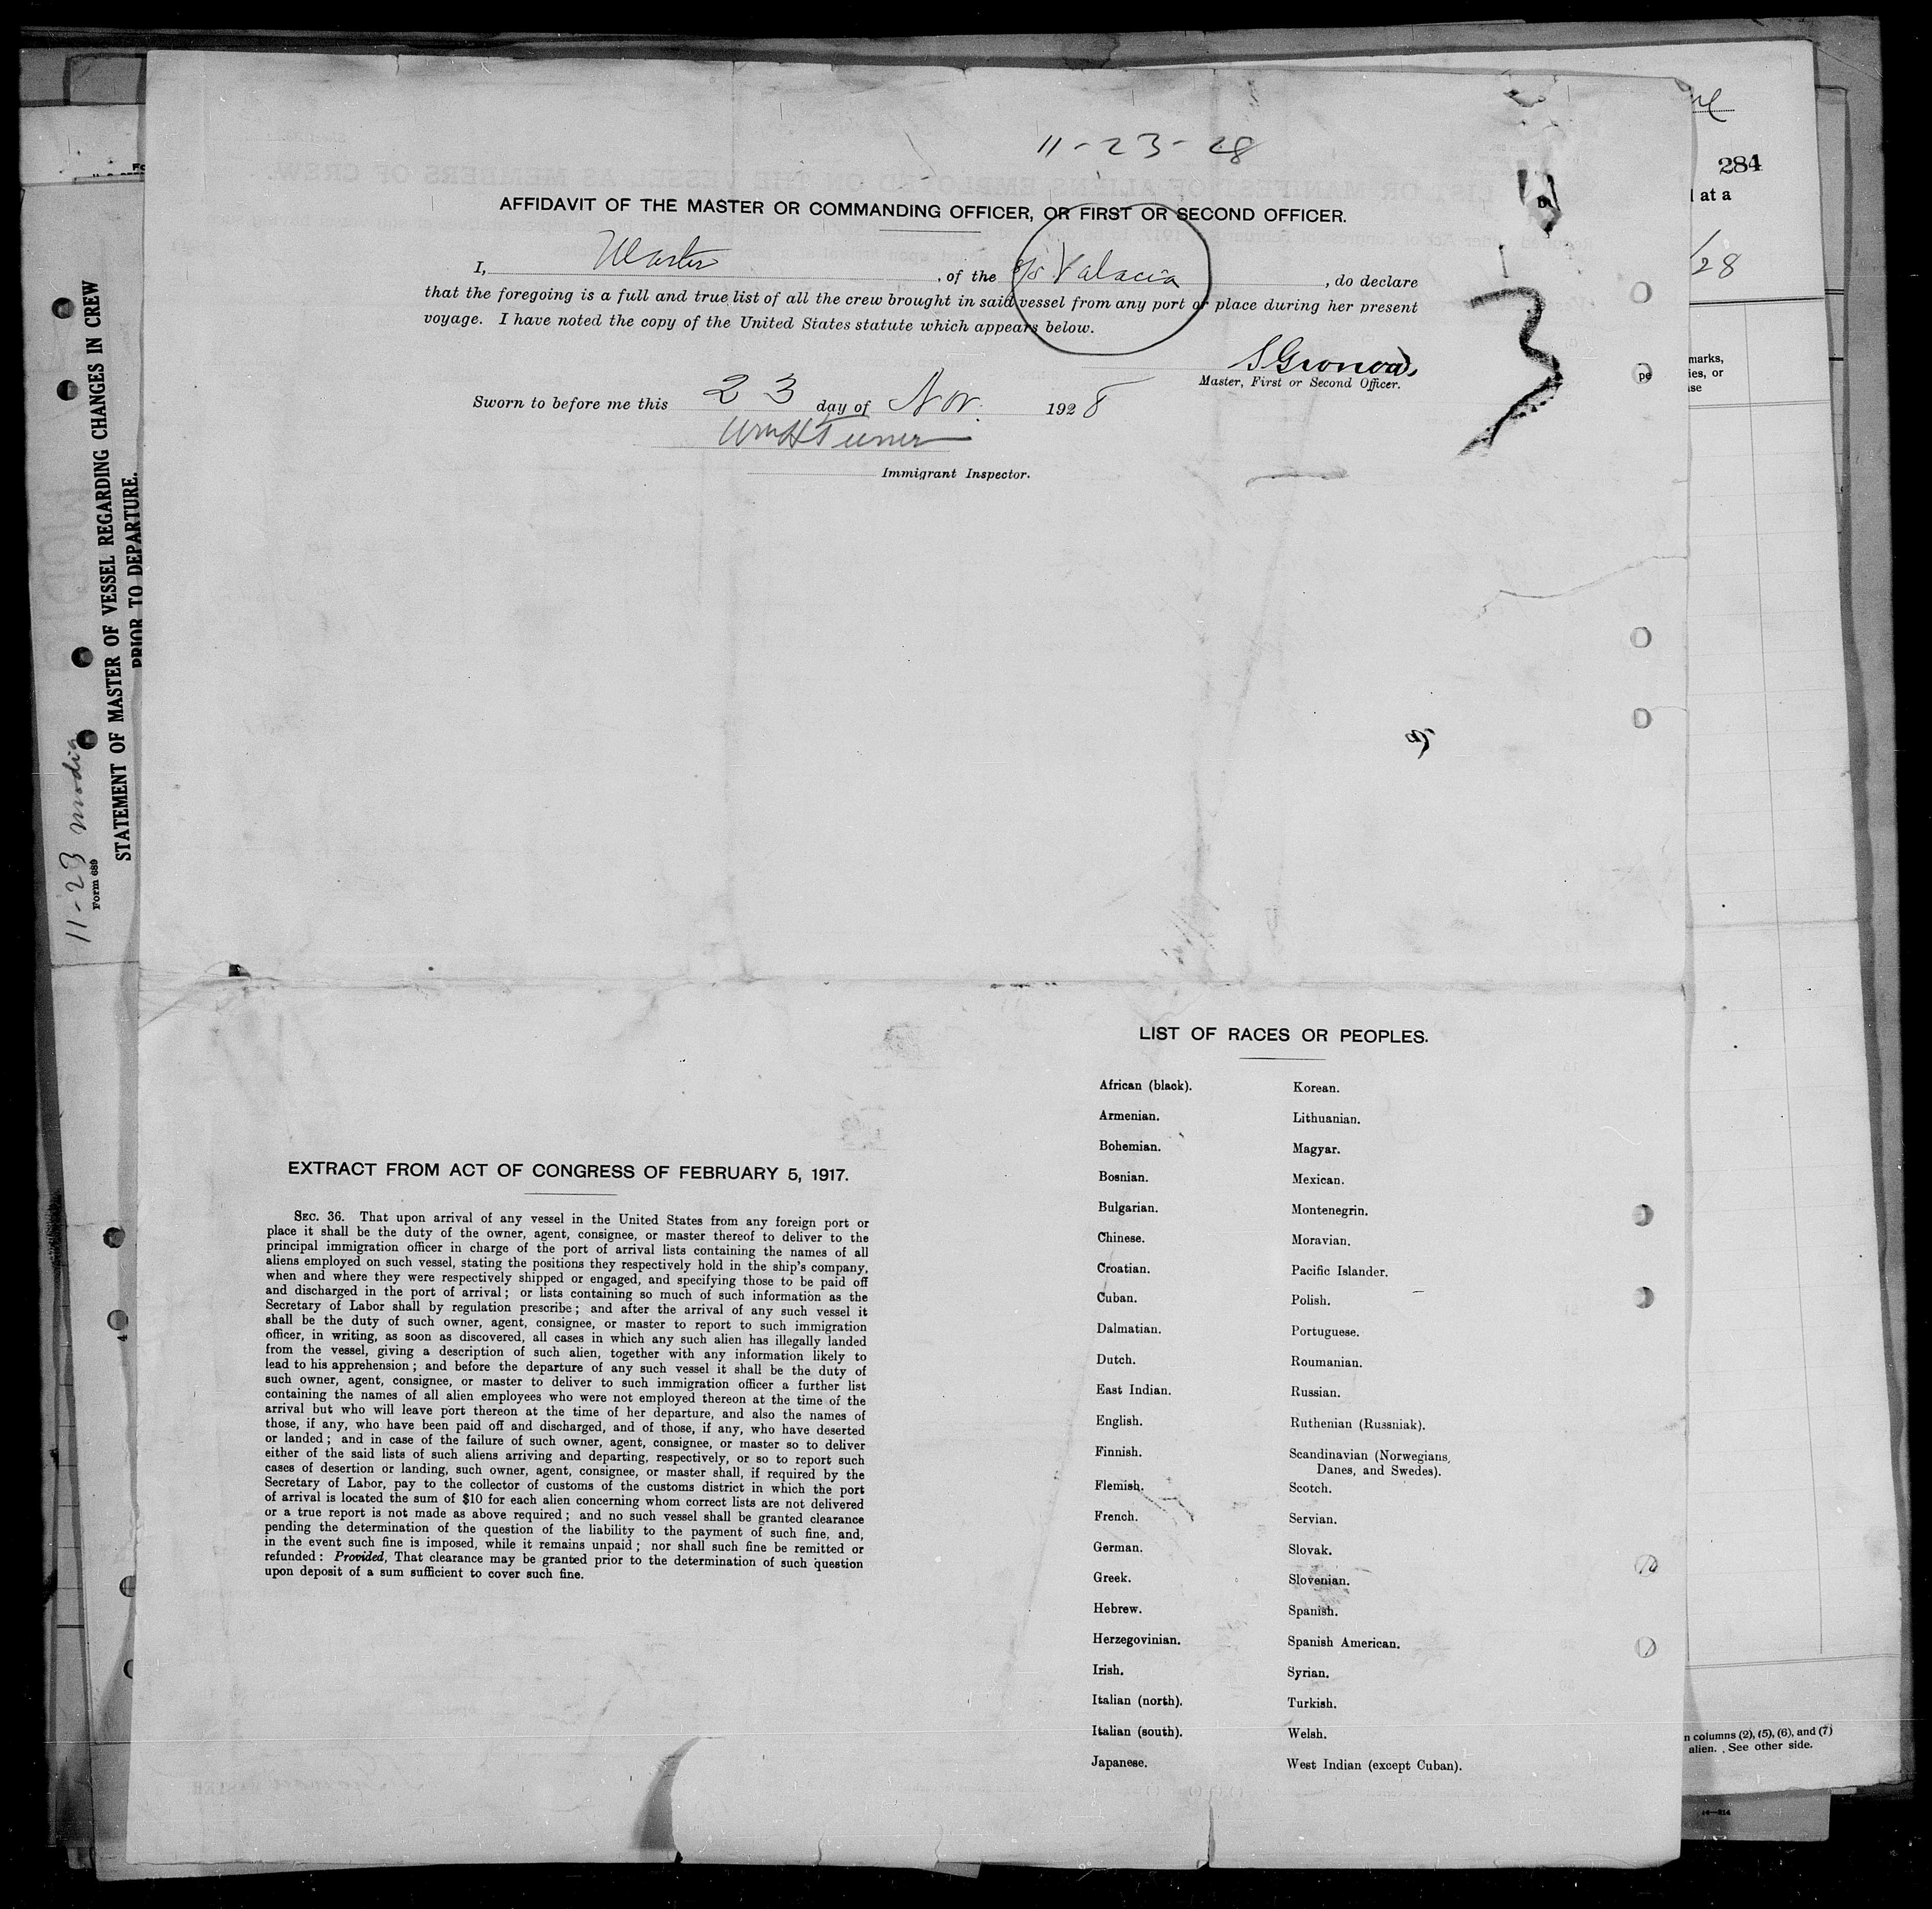 11-23-28
AFFIDAVIT OF THE MASTER OR COMMANDING OFFICER, OR FIRST OR SECOND OFFICER.
I, Master, of the S/S Valacia, do declare
that the foregoing is a full and true list of all the crew brought in said vessel from any port or place during her present
voyage. I have noted the copy of the United States statute which appears below.
Master, First or Second Officer.
Sworn to before me this 23 day of Nov. 1928
Wm H Turner
Immigrant Inspector.
3
EXTRACT FROM ACT OF CONGRESS OF FEBRUARY 5, 1917.
SEC. 36. That upon arrival of any vessel in the United States from any foreign port or
place it shall be the duty of the owner, agent, consignee, or master thereof to deliver to the
principal immigration officer in charge of the port of arrival lists containing the names of all
aliens employed on such vessel, stating the positions they respectively hold in the ship's company,
when and where they were respectively shipped or engaged, and specifying those to be paid off
and discharged in the port of arrival; or lists containing so much of such information as the
Secretary of Labor shall by regulation prescribe; and after the arrival of any such vessel it
shall be the duty of such owner, agent, consignee, or master to report to such immigration
officer, in writing, as soon as discovered, all cases in which any such alien has illegally landed
from the vessel, giving a description of such alien, together with any information likely to
lead to his apprehension; and before the departure of any such vessel it shall be the duty of
such owner, agent, consignee, or master to deliver to such immigration officer a further list
containing the names of all alien employees who were not employed thereon at the time of the
arrival but who will leave port thereon at the time of her departure, and also the names of
those, if any, who have been paid off and discharged, and of those, if any, who have deserted
or landed; and in case of the failure of such owner, agent, consignee, or master so to deliver
either of the said lists of such aliens arriving and departing, respectively, or so to report such
cases of desertion or landing, such owner, agent, consignee, or master shall, if required by the
Secretary of Labor, pay to the collector of customs of the customs district in which the port
of arrival is located the sum of $10 for each alien concerning whom correct lists are not delivered
or a true report is not made as above required; and no such vessel shall be granted clearance
pending the determination of the question of the liability to the payment of such fine, and,
in the event such fine is imposed, while it remains unpaid; nor shall such fine be remitted or
refunded: Provided, That clearance may be granted prior to the determination of such question
upon deposit of a sum sufficient to cover such fine.
LIST OF RACES OR PEOPLES.
African (black).
Armenian.
Bohemian.
Bosnian.
Bulgarian.
Chinese.
Croatian.
Cuban.
Dalmatian.
Dutch.
East Indian.
English.
Finnish.
Flemish.
French.
German.
Greek.
Hebrew.
Herzegovinian.
Irish.
Italian (north).
Italian (south).
Japanese.
Korean.
Lithuanian.
Magyar.
Mexican.
Montenegrin.
Moravian.
Pacific Islander.
Polish.
Portuguese.
Roumanian.
Russian.
Ruthenian (Russniak).
Scandinavian (Norwegians,
Danes, and Swedes).
Scotch.
Servian.
Slovak.
Slovenian.
Spanish.
Spanish American.
Syrian.
Turkish.
Welsh.
West Indian (except Cuban).
11-23
Form 689
STATEMENT OF MASTER OF VESSEL REGARDING CHANGES IN CREW
PRIOR TO DEPARTURE.
284
at a
/28
marks,
ies, or
se
n columns (2), (5), (6), and (7)
alien. See other side.